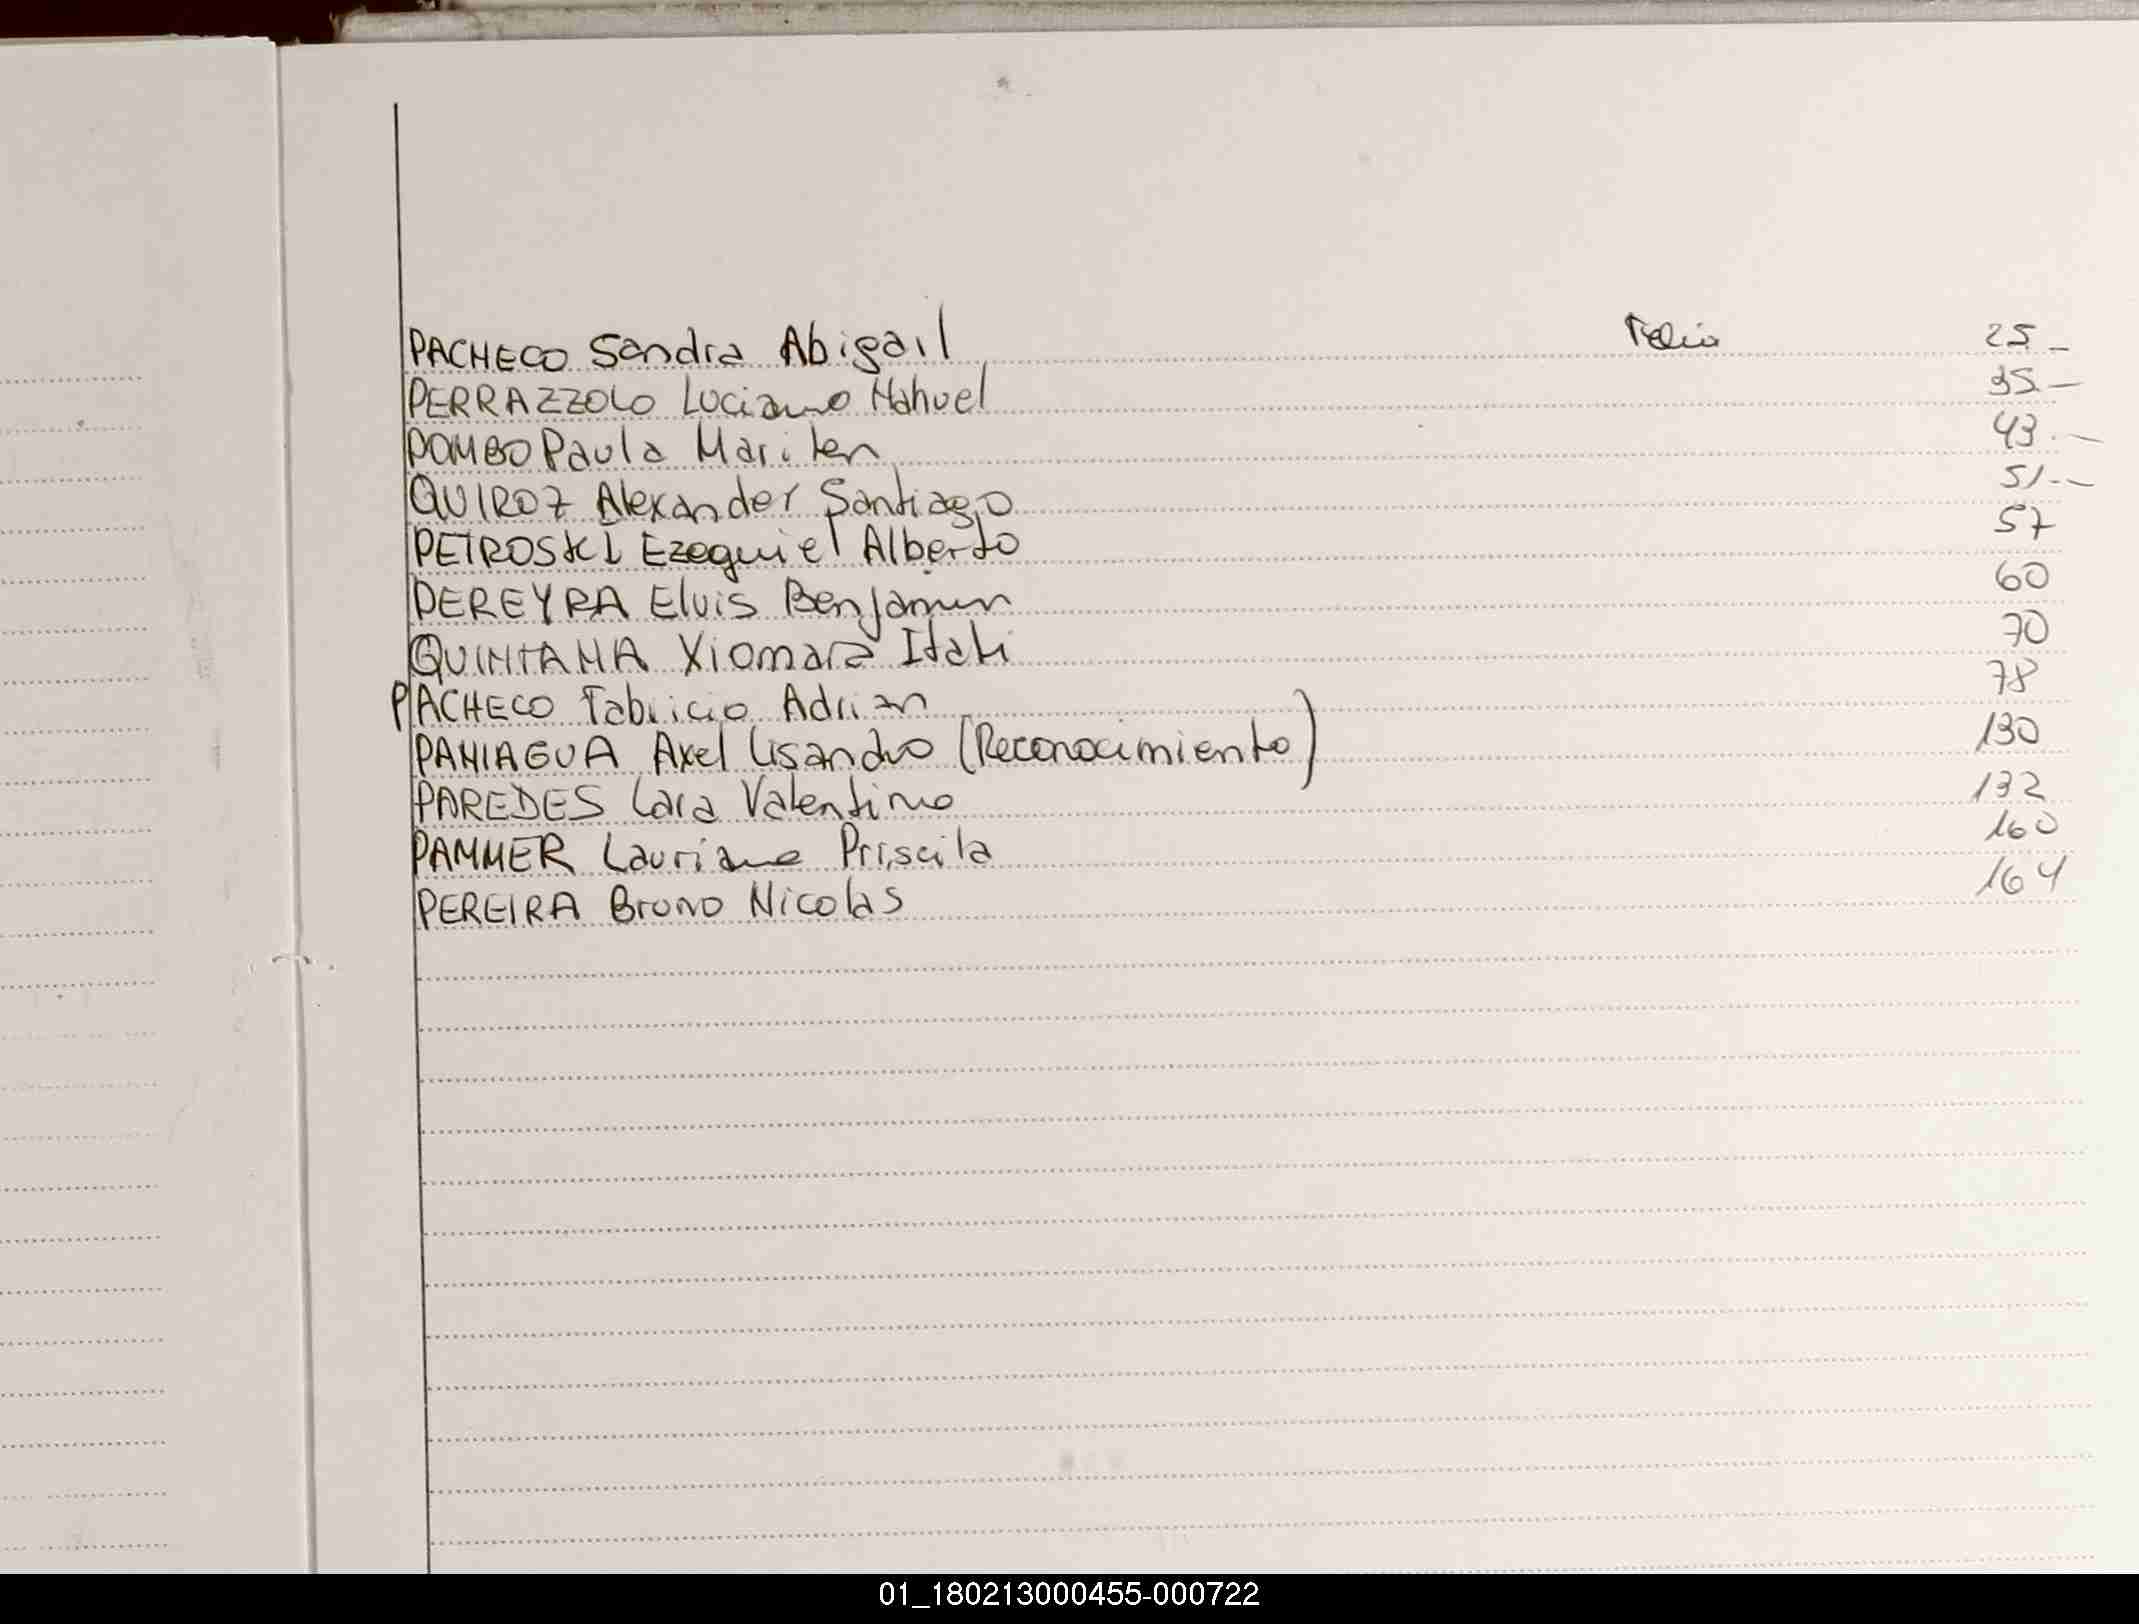 PACHECO Sandra Abigail Folio 25 -
PERRAZZOLO Luciano Nahuel 35.-
POMBO Paula Marilen 43.-
QUIROZ Alexander Santiago 51.-
PETROSKI Ezequiel Alberto 57
PEREYRA Elvis Benjamin 60
QUINTANA Xiomara Itati 70
PACHECO Fabricio Adrian 78
PANIAGUA Axel Lisandro (Reconocimiento) 130
PAREDES Lara Valentino 132
PAMMER Lauriane Priscila 160
PEREIRA Bruno Nicolas 164
01_180213000455-000722